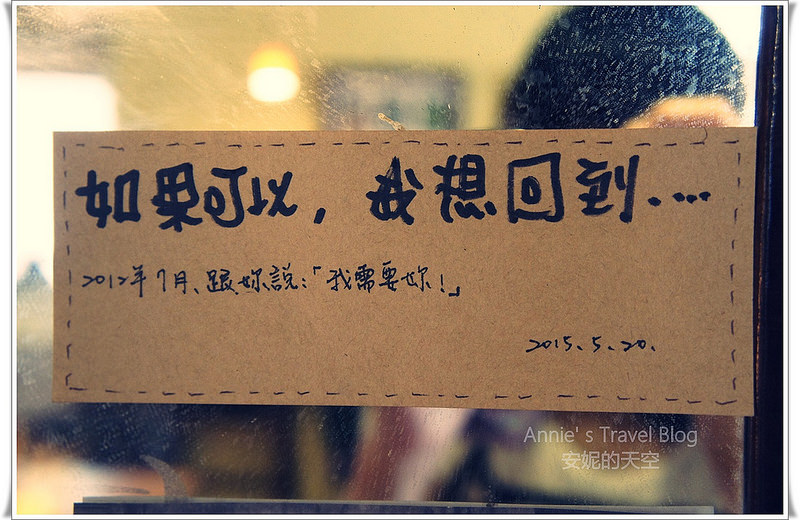 如果可以,我想回到....
2012年7月、跟妳說:「我需要妳!」
2015.5.20.
Annie's Travel Blog
安妮的天空